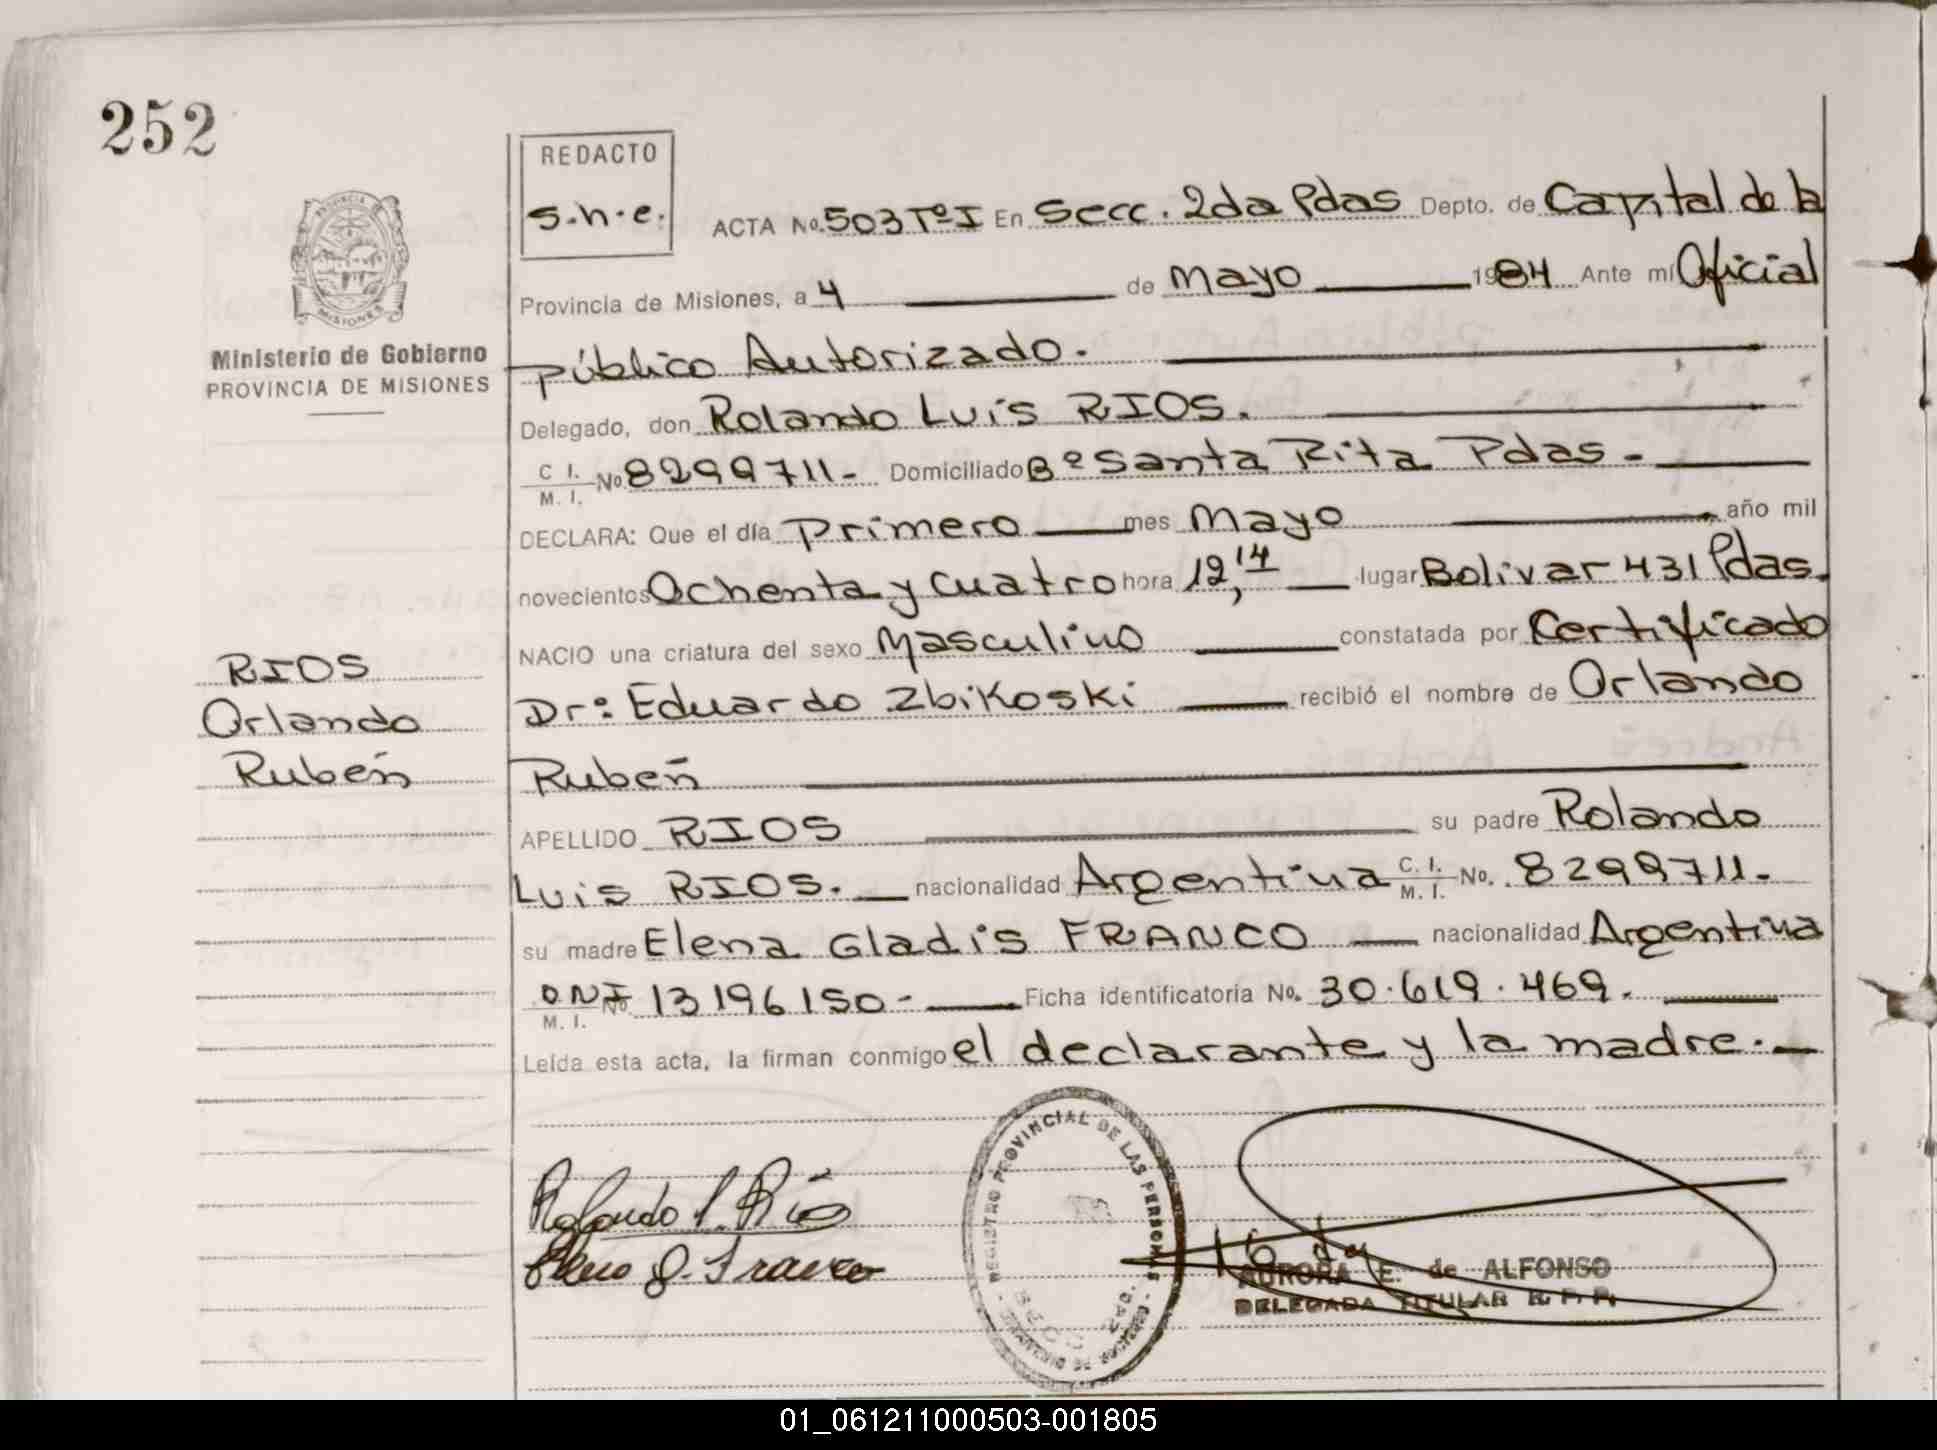 252
REDACTO
s.h.e.
ACTA No. 503 Tº I En Secc. 2da Pdas Depto. de Capital de la
Provincia de Misiones, a 4 de Mayo 1984 Ante mí Oficial
público Autorizado.
Ministerio de Gobierno
PROVINCIA DE MISIONES
Delegado, don Rolando Luis RIOS.
C I. M. I. No 8299711- Domiciliado Bº Santa Rita Pdas -
DECLARA: Que el día primero mes Mayo año mil
novecientos Ochenta y Cuatro hora 12,14 lugar Bolivar 431 Pdas.
NACIO una criatura del sexo Masculino constatada por Certificado
Dr: Eduardo Zbikoski recibió el nombre de Orlando
Rubén
RIOS
Orlando
Rubén
APELLIDO RIOS su padre Rolando
Luis RIOS. nacionalidad Argentina C. I. M. I. No. 8299711.
su madre Elena Gladis FRANCO nacionalidad Argentina
DNI M. I. No 13196150- Ficha identificatoria No. 30.619.469.
Leída esta acta, la firman conmigo el declarante y la madre.
Rolando L. Ríos
Elena G. Franco
REGISTRO PROVINCIAL DE LAS PERSONAS
AURORA E. de ALFONSO
DELEGADA TITULAR R. P. P.
01_061211000503-001805